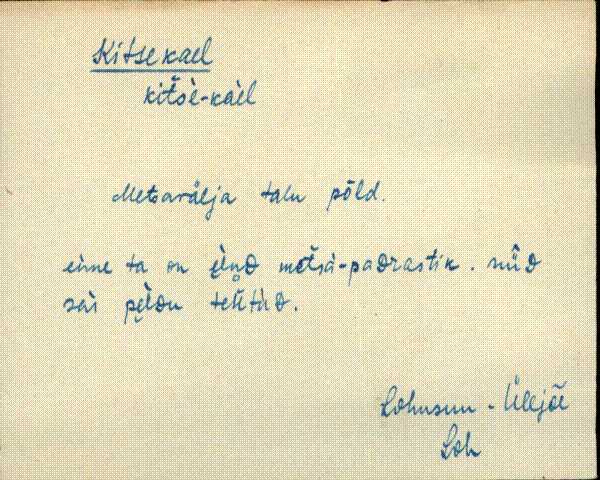 Kitsekael
kitse-kàel
Metsavälja talu põld.
enne ta on metsa-padrastik. nüD
sai teťtuD.
Lohusuu - Ülejõe
Loh